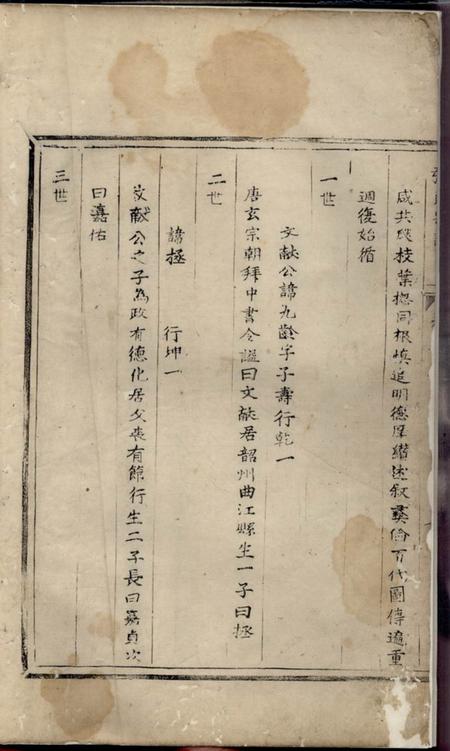 咸共幾枝葉揔同根慎追明德厚継述叙彛倫百代圖傳遍重
週復始循
一世
文献公諱九齡字子壽行乾一
唐玄宗朝拜中書令謚曰文献居韶州曲江縣生一子曰拯
二世
諱拯 行坤一
文献公之子為政有德化居父丧有節行生二子長曰嘉貞次
曰嘉佑
三世